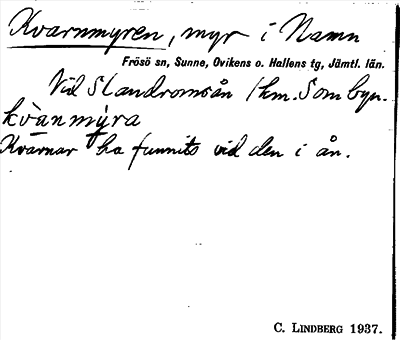 Kvarnmyren, myr i Namn
Frösö sn, Sunne, Ovikens o. Hallens tg, Jämtl. län.
Vid Slandromsån 1 km. S om byn.
kvànmỳra
Kvarnar ha funnits vid den i ån.
C. LINDBERG 1937.